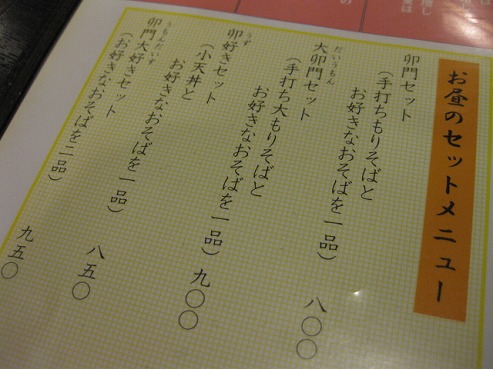 お昼のセットメニュー
卯門セット
（手打ちもりそばと
お好きなおそばを一品） 八〇〇
だいうもん
大卯門セット
（手打ち大もりそばと
お好きなおそばを一品） 九〇〇
うず
卯好きセット
（小天丼と
お好きなおそばを一品） 八五〇
うもんだいず
卯門大好きセット
（お好きなおそばを二品） 九五〇